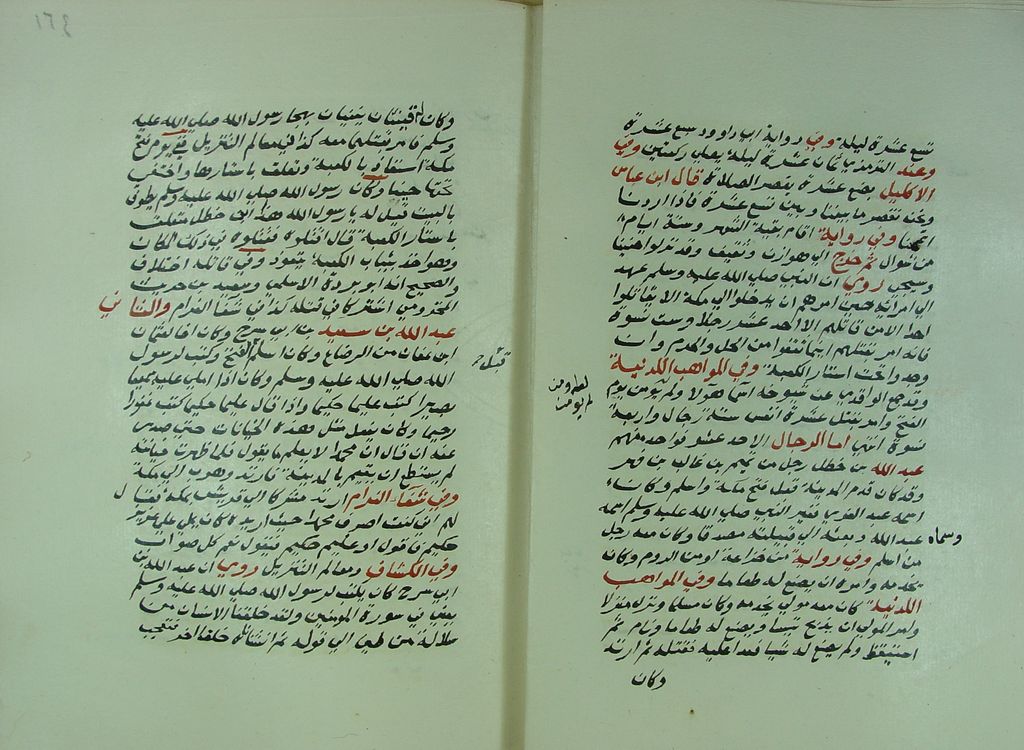 تسع عشرة ليلة وفي رواية ابي داود سبع عشرة
وعند الترمذي ثمان عشرة ليلة يصلي ركعتين وفي
الاكليل بضع عشرة يقصر الصلاة قال ابن عباس
ونحن نقصر ما بيننا وبين تسع عشرة فاذا اردنا
اتممنا وفي رواية اقام بقية الشهر وستة ايام
من شوال ثم خرج الى هوازن وثقيف وقد نزلوا حنينا
وسيجي روي ان النبي صلى الله عليه وسلم عهد
الى امرائه حين امرهم ان يدخلوا الى مكة الا يقاتلوا
احدا الا من قاتلهم الا احد عشر رجلا وست نسوة
فانه امر بقتلهم اينما ثقفوا من الحل والحرم وان
وجدوا تحت استار الكعبة وفي المواهب اللدنية
وقد جمع الواقدي عن شيوخه اسما هؤلا ولم يومن يوم
الفتح وامر بقتل عشرة انفس ستة رجال واربعة
نسوة انتهى اما الرجال الاحد عشر فواحد منهم
عبد الله بن خطل رجل من تيم بن غالب بن فهر
وقد كان قدم المدينة قبل فتح مكة واسلم وكان
اسمه عبد العزى فغير النبي صلى الله عليه وسلم اسمه
وسماه عبد الله وبعثه الى قبيلته مصدقا وكان معه رجل
من اسلم وفي رواية من خزاعة او من الروم وكان
يخدمه وامره ان يصنع له طعاما وفي المواهب
اللدنية كان معه مولى يخدمه وكان مسلما ونزل منزلا
وامر المولى ان يذبح تيسا ويصنع له طعاما ونام ثم
استيقظ ولم يصنع له شيا فعدا عليه فقتله ثم ارتد
وكان
١٦٤
وكان له قينتان يغنيان بهجا رسول الله صلى الله عليه
وسلم فامر بقتلهما معه كذا في معالم التنزيل ففي يوم فتح
مكة استعاذ بالكعبة وتعلق باستارها واختفى
تحتها وكان رسول الله صلى الله عليه وسلم يطوف
بالبيت قيل له يا رسول الله هذا ابن خطل متعلق
باستار الكعبة قال اقتلوه فقتلوه في ذلك المكان
وهو اخذ بثياب الكعبة يتعوذ وفي قاتله اختلاف
والصحيح انه ابو برزة الاسلمي وسعيد بن حريث
المخزومي اشتركا في قتله كذا في شفا الغرام والثاني
عبد الله بن سعيد بن ابي سرح وكان اخا لعثمان
ابن عفان من الرضاع وكان اسلم قبل الفتح وكتب لرسول
الله صلى الله عليه وسلم وكان اذا املى عليه سميعا
بصيرا كتب عليما حكيما واذا قال عليما حكيما كتب غفورا
رحيما وكان يفعل مثل هذه الخيانات حتى صدر
عنه ان قال ان محمدا لا يعلم ما يقول فلما ظهرت خيانته
لم يستطع ان يقيم بالمدينة فارتد وهرب الى مكة
وفي شفا الغرام ارتد مشركا الى قريش بمكة فقال
لهم اني كنت اصرف محمدا حيث اريد كان يملي علي عزيز
حكيم فاقول او عليم حكيم فيقول نعم كل صواب
وفي الكشاف ومعالم التنزيل روي ان عبد الله بن
ابي سرح كان يكتب لرسول الله صلى الله عليه وسلم
يعني في سورة المؤمنين ولقد خلقنا الانسان من
سلالة من طين الى قوله ثم انشاناه خلقا اخر فتعجب